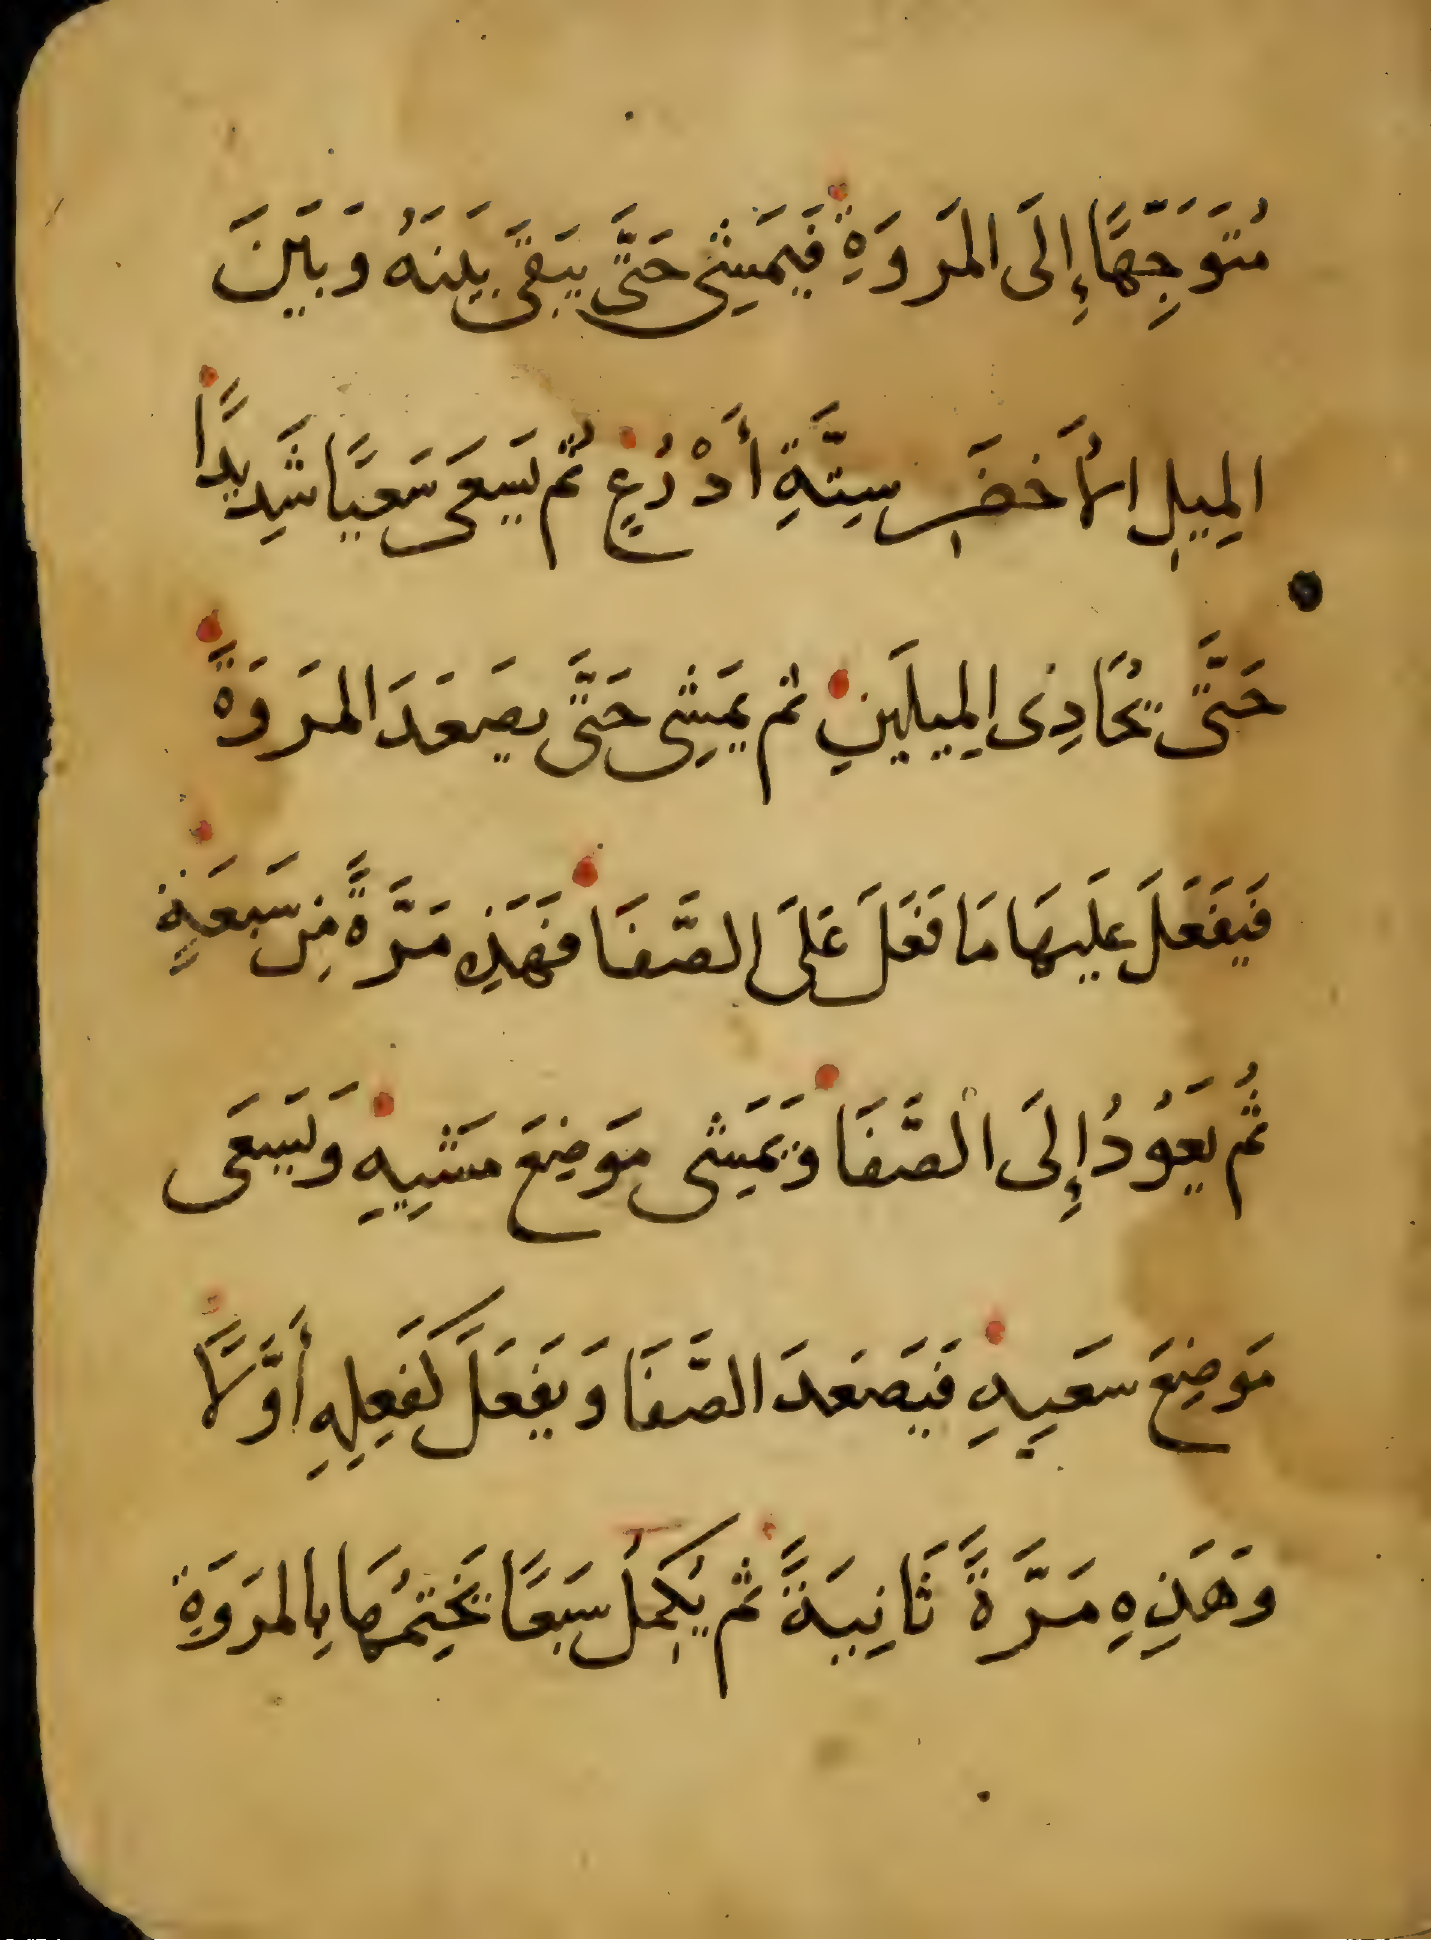 مُتَوَجِّهًا إِلَى المَروَةِ فَيَمَشِى حَتَّى يَبقَى بَينَهُ وَبَينَ
المِيلِ الأَخضَرِ سِتَّةِ أَذْرُعٍ ثُم يَسَعَى سَعيًا شَدِيدًا
حَتَّى يُحَاذِى المِيلَينِ ثم يَمَشِى حَتَّى يصَعَدَ المَروَةَ
فَيَفعَلَ عَلَيهَا مَا فَعَلَ عَلَى الصَّفَا فَهَذِهِ مَرَّةً مِن سَبعَةٍ
ثُم يَعُودُ إِلَى الصَّفَا وَيَمَشِى مَوَضِعَ مَشيِهِ وَيَسَعَى
مَوَضِعَ سَعيِهِ فَيَصعَدَ الصَّفَا وَيَفعَلَ كَفَعِلِهِ أَوَّلًا
وَهَذِهِ مَرَّةً ثَانِيَةً ثم يُكمِلُ سَبعًا يَختِمُهَا بِالمَروَةِ